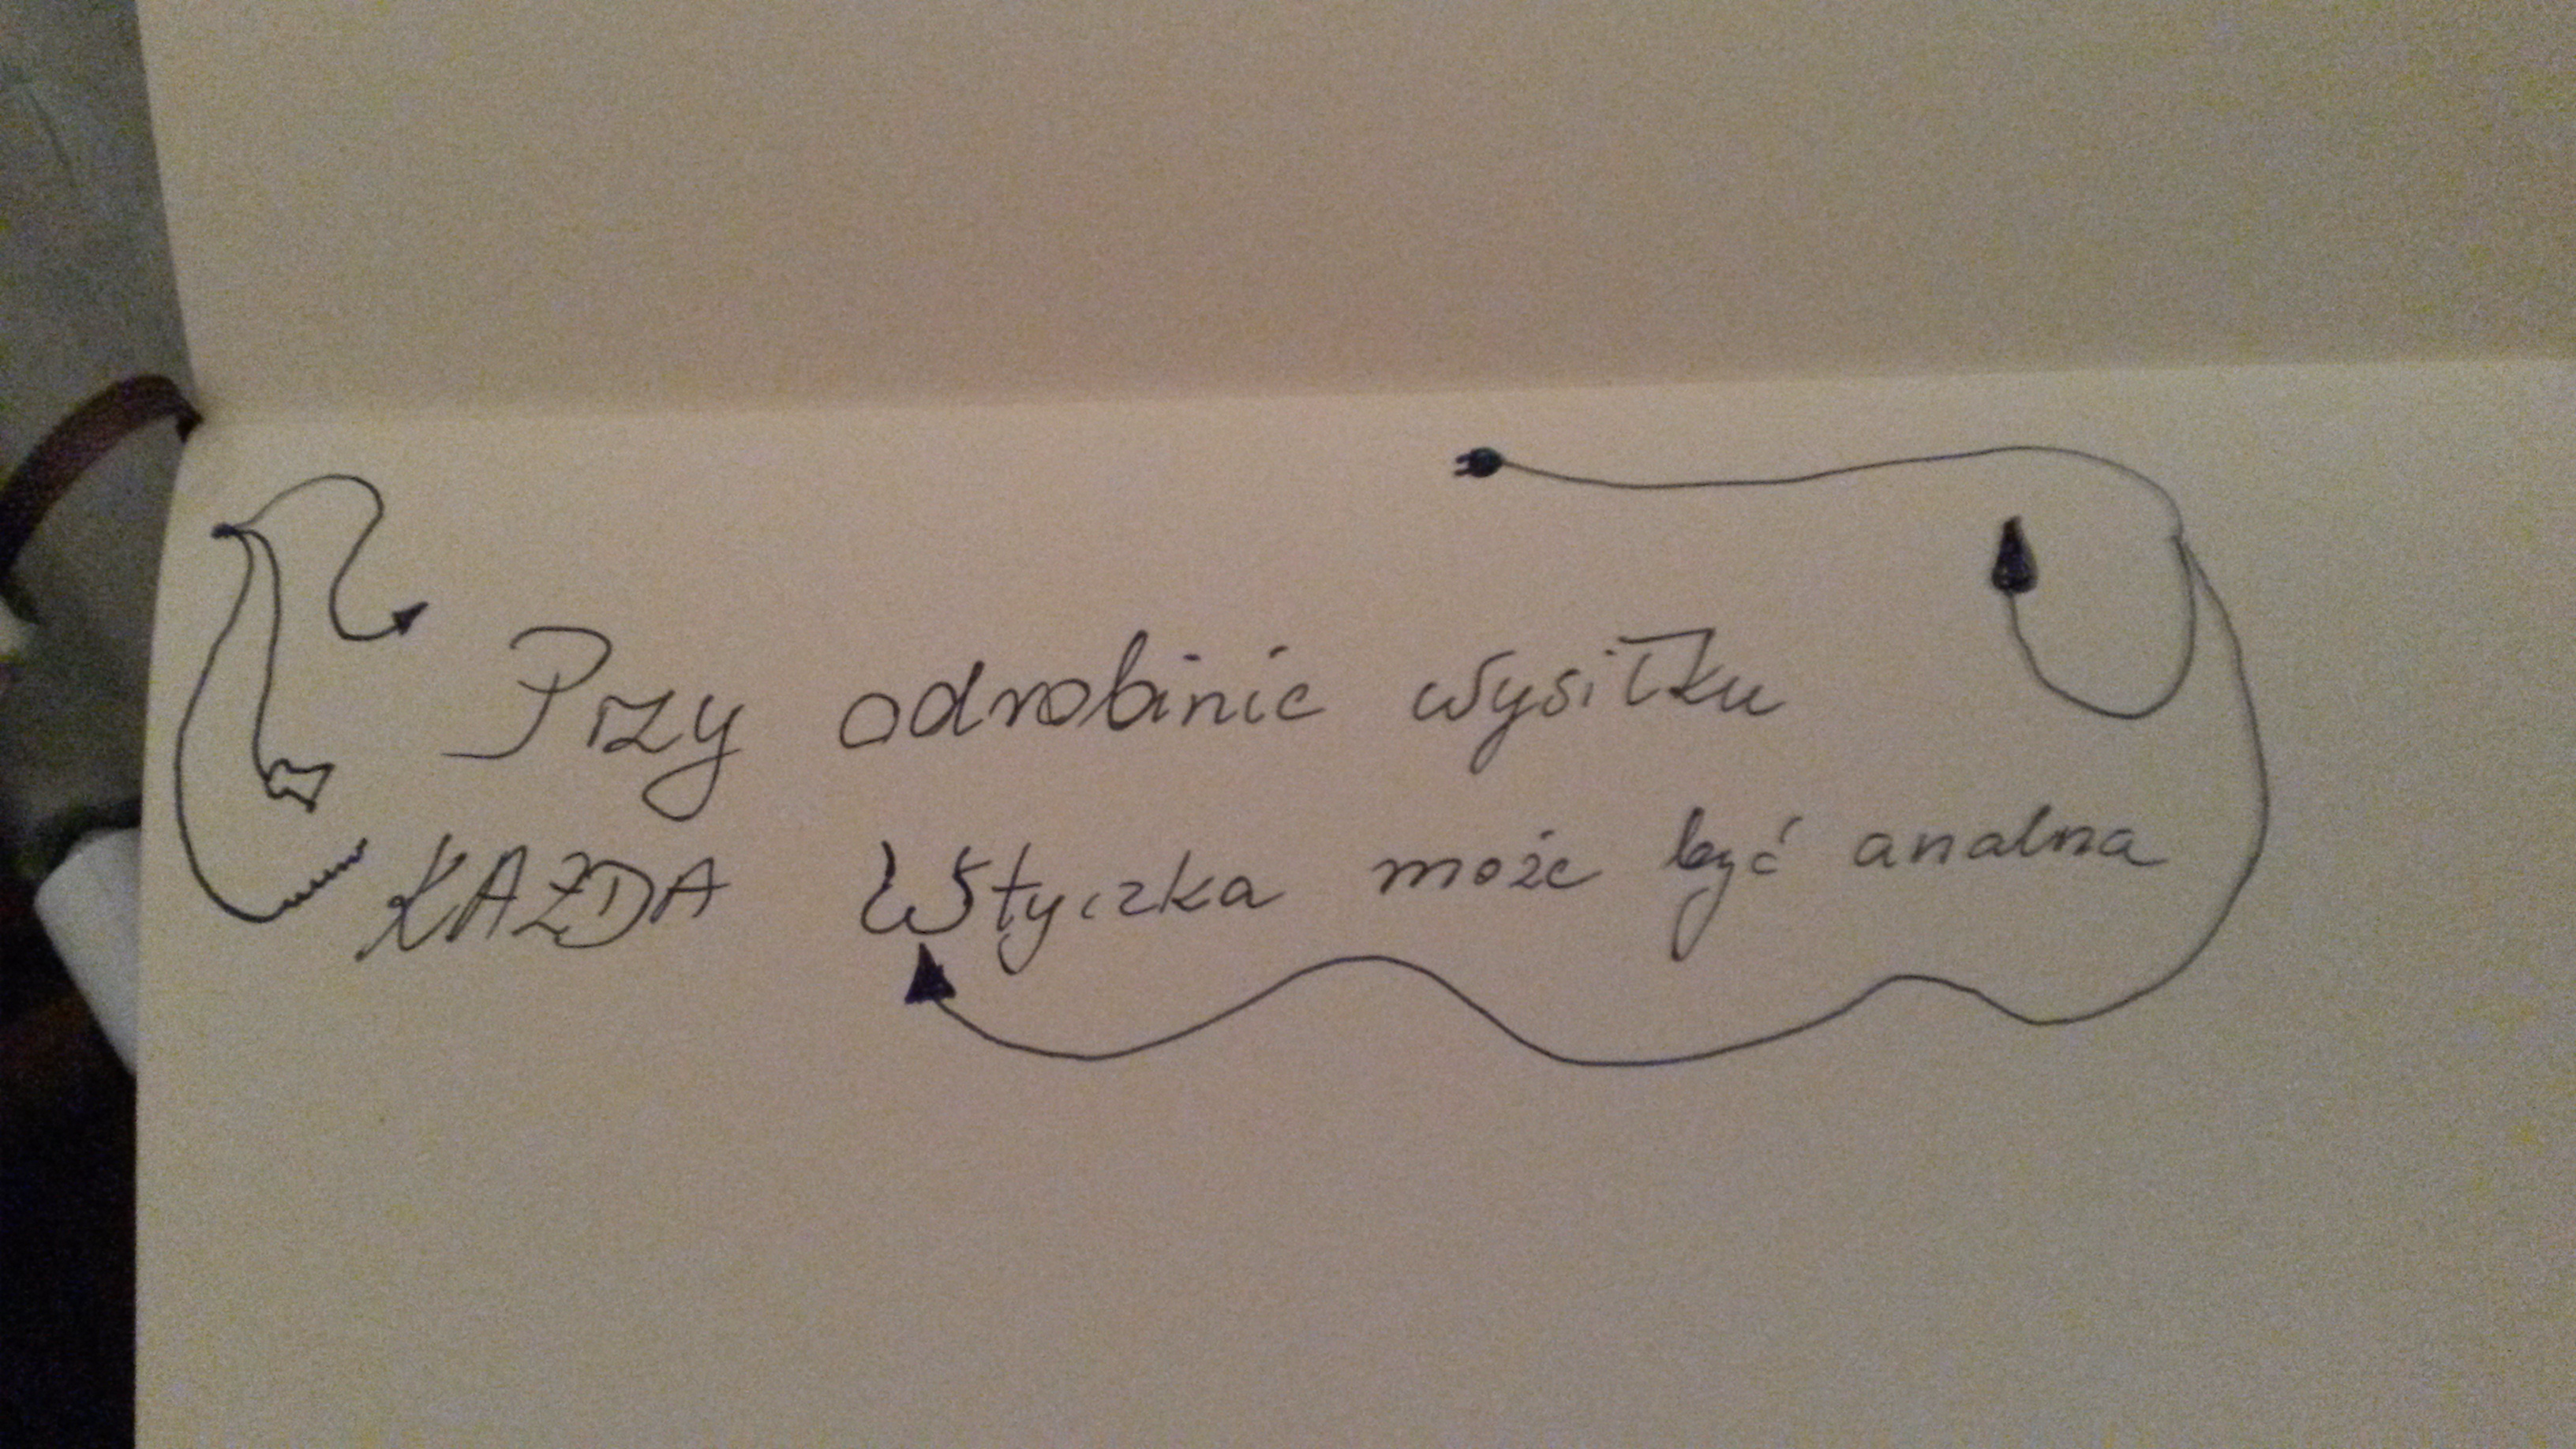 Przy odrobinie wysiłku
KAŻDA wtyczka może być analna